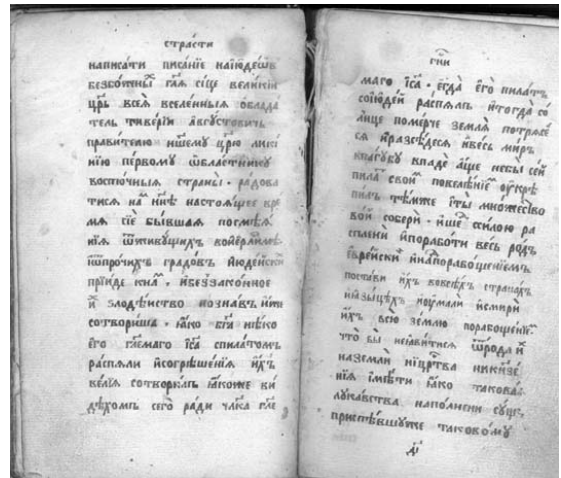 страсти
написати писанїе наїюдеѡ҆въ
безбожны гл҃я сі́це вели́кїи
цр҃ь всея̀ вселе́нныѧ облада
тель тиве́рїи а҆́вгустовичь
правителю нашему црю лики
нїю пе́рвому ѡ҆бластнику
восто́чныѧ страны̀ . ра́дова
тися на нн҃ѣ настоѧ́щее вре
мѧ сїѐ бы́вшая
нїѧ ѿживу́щихъ воїерлимѣ
ѿпро́чихъ градо́въ їюде́йски
прїи́де ꙗ҆беззако́нное
и҆ злодѣ́йство позна́въ
сотвори́ша . ꙗ҆́ко бг҃а нѣ́ко
его̀ гл҃емаго їс҃а спила́томъ
распя́ли и҆согрѣше́нїѧ и҆́хъ
ве́лїѧ сотвори́въ ꙗ҆́коже ви́
дѣхомъ сего̀ ра́ди чл҃ка гл҃е
гн҃и
маго їс҃а . е҆гда̀ е҆го̀ пила́тъ
соїюде́й распя́лъ и҆тогда̀ со́
лнце поме́рче земля̀ потрясе́
ся и҆разсѣ́деся и҆ве́сь миръ
впа́губу впадѐ а҆́ще небы̀ се́й
пила свои повелѣ́нїе ѹкрѣ
пилъ тѣ́мже и҆ты̀ мно́жество
во́й соберѝ . и҆ше си́лою ра
и҆порабо́ти ве́сь ро́дъ
е҆вре́йски и҆напорабоще́нїемъ
поста́ви и҆́хъ вовсѣ́хъ страна́хъ
и҆ꙗзы́цѣхъ и҆ѹмалѝ и҆смирѝ
и҆́хъ всю̀ зе́млю порабоще́нїе
что̀ бы ненави́тися ѿро́да и҆́
назе́мли ницр҃тва никнѧзе́
нїѧ и҆мѣ́ти ꙗ҆́ко такова̀
лука́вства напо́лнени су́ще
приспѣ́вшуже таково́му
д҃і